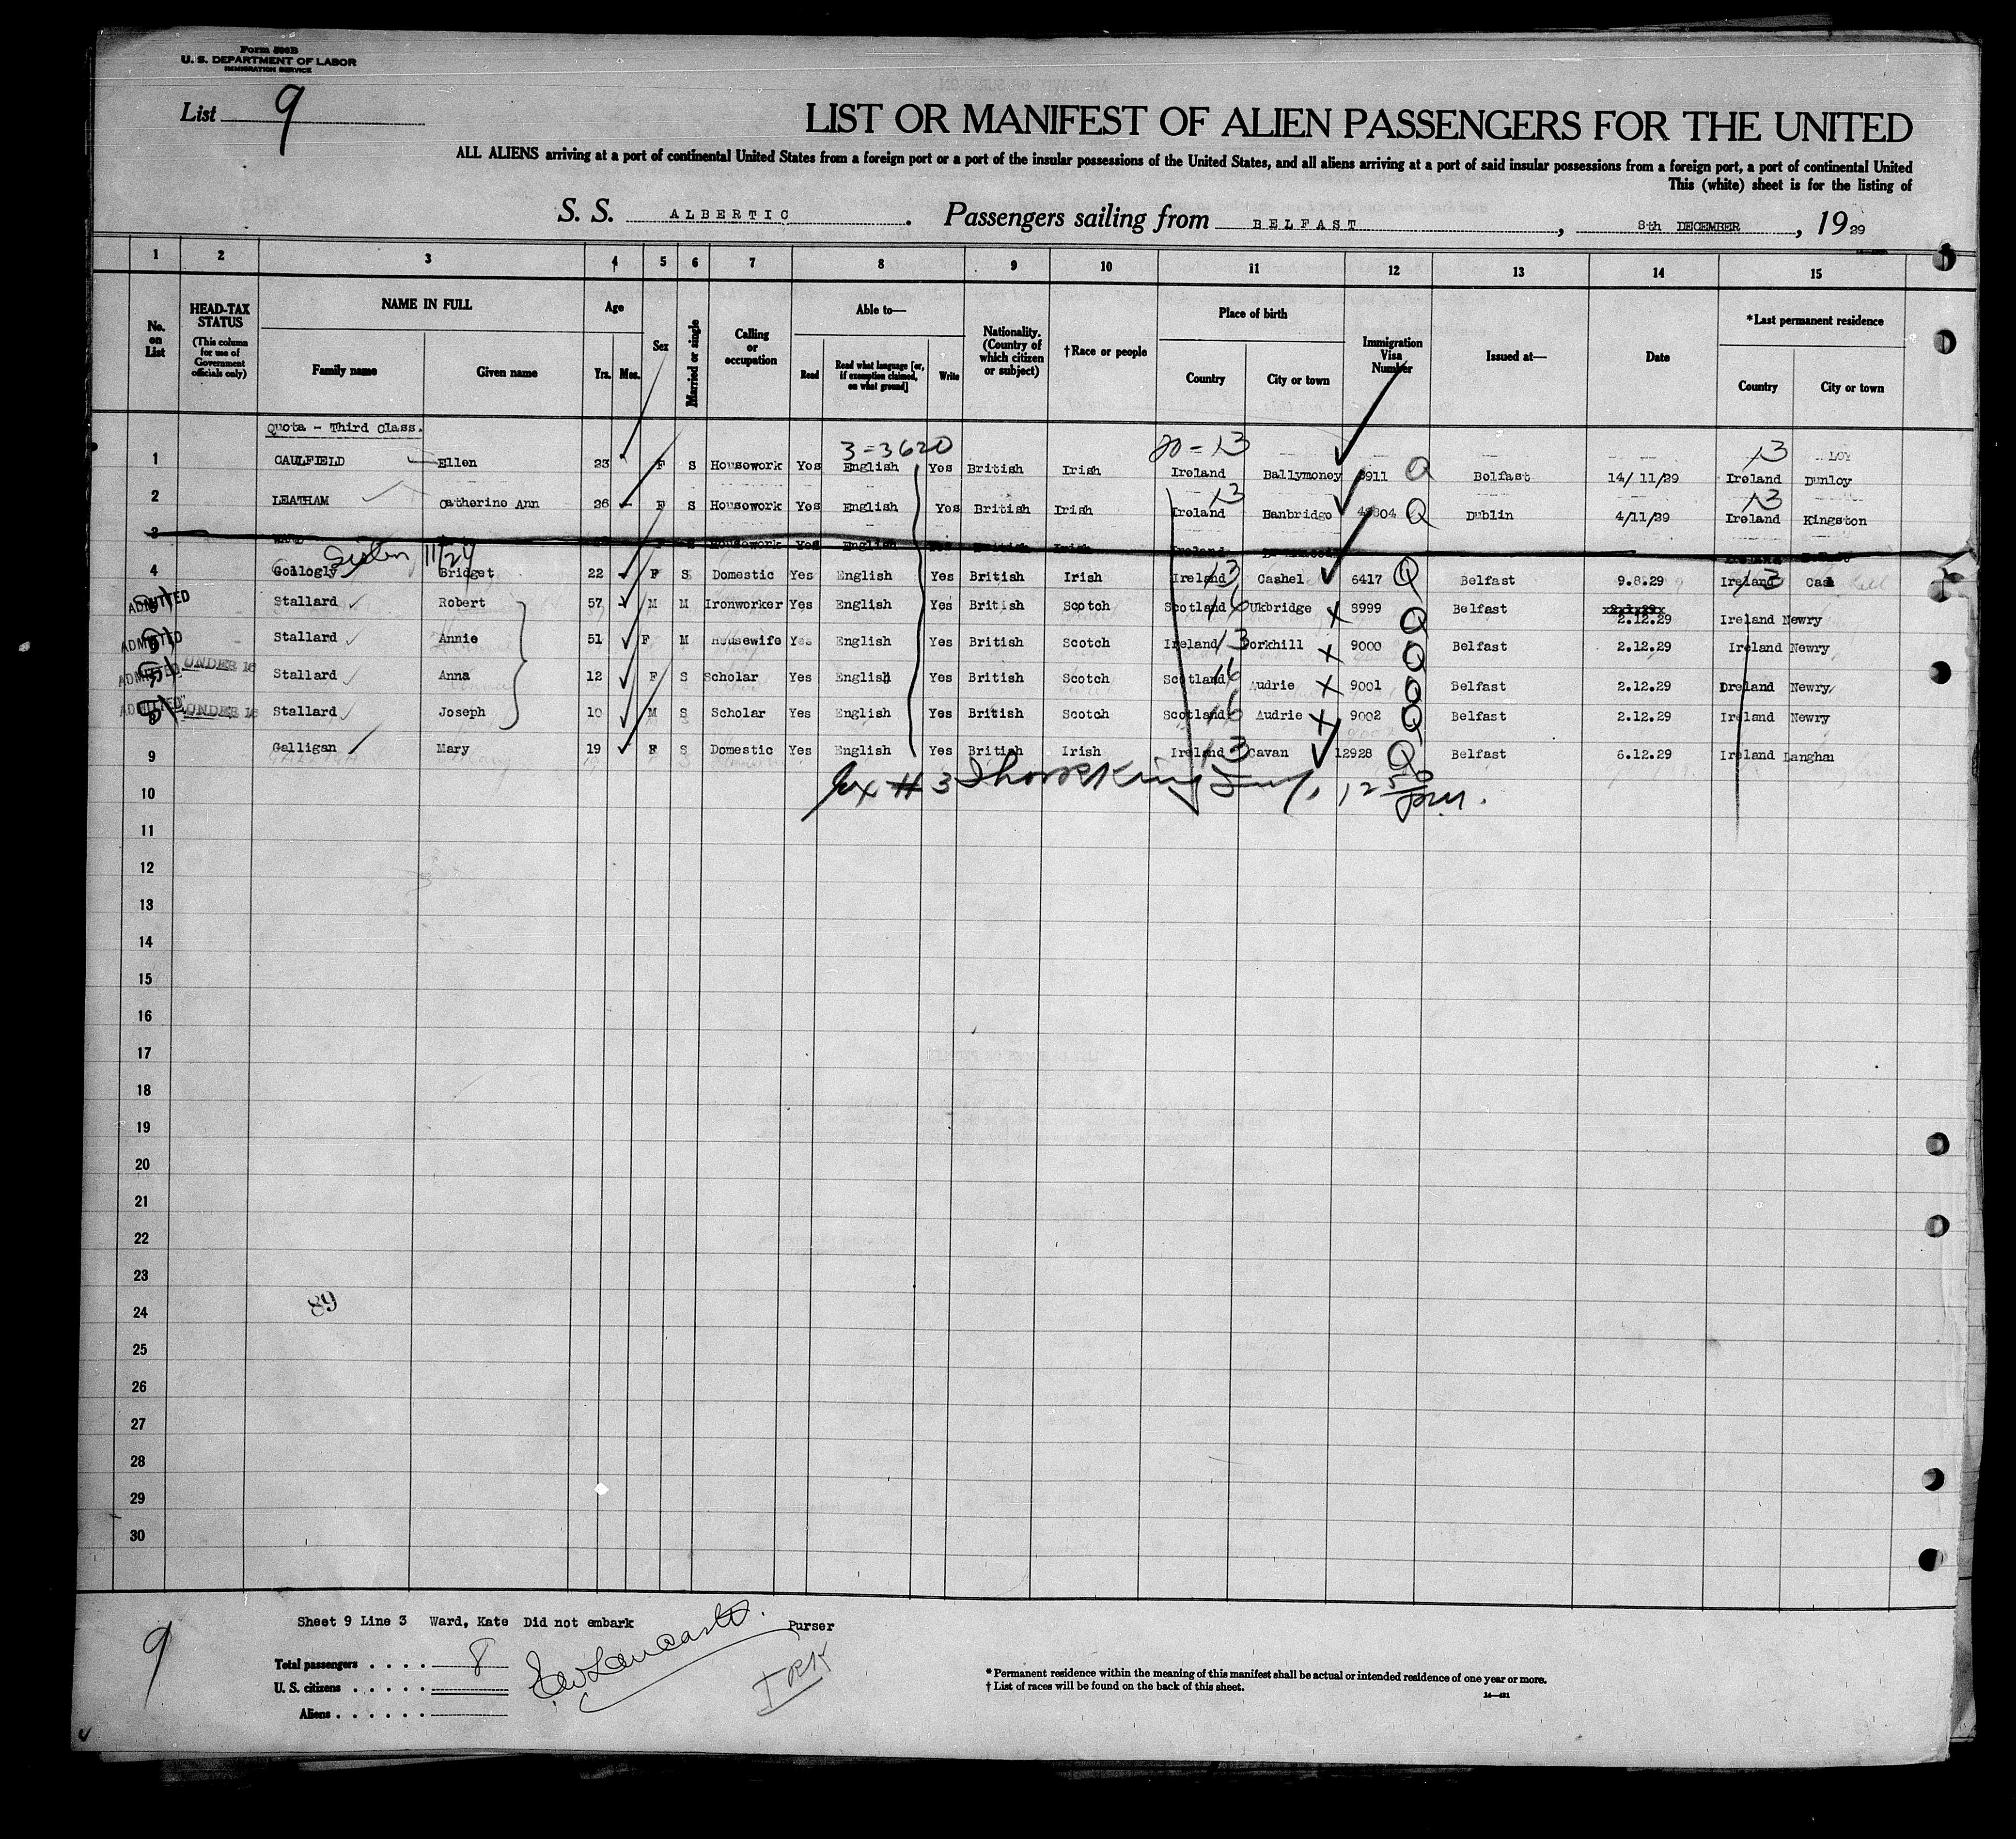 Form 500B
U. S. DEPARTMENT OF LABOR
IMMIGRATION SERVICE
List 9
LIST OR MANIFEST OF ALIEN PASSENGERS FOR THE UNITED
ALL ALIENS arriving at a port of continental United States from a foreign port or a port of the insular possessions of the United States, and all aliens arriving at a port of said insular possessions from a foreign port, a port of continental United
This (white) sheet is for the listing of
S. S. ALBERTIC. Passengers sailing from BELFAST, 8th DECEMBER, 19 29
1 2 3 4 5 6 7 8 9 10 11 12 13 14 15
No. on List
HEAD-TAX STATUS (This column for use of Government officials only)
NAME IN FULL
Family name Given name
Age
Yrs. Mos.
Sex
Married or single
Calling or occupation
Able to—
Read Read what language [or, if exemption claimed, on what ground] Write
Nationality. (Country of which citizen or subject)
†Race or people
Place of birth
Country City or town
Immigration Visa Number
Issued at—
Date
*Last permanent residence
Country City or town
Quota - Third Class.
3=3620 13 13 LOY
1 CAULFIELD Ellen 23 F S Housework Yes English Yes British Irish Ireland Ballymoney 8911 Q Belfast 14/ 11/29 Ireland Dunloy
13 13
2 LEATHAM Catherine Ann 26 F S Housework Yes English Yes British Irish Ireland Banbridge Q Dublin 4/11/29 Ireland Kingston
3 WARD F S Housework Yes English Yes British Irish Ireland Ireland
Sister 11/24
4 Gollogly Bridget 22 F S Domestic Yes English Yes British Irish Ireland 13 Cashel 6417 Q Belfast 9.8.29 Ireland 13
ADMITTED Stallard Robert 57 M M Ironworker Yes English Yes British Scotch Scotland 16 Ukbridge X 8999 Q Belfast 2.12.29 Ireland Newry
ADMITTED Stallard Annie 51 F M Housewife Yes English Yes British Scotch Ireland 13 Forkhill X 9000 Q Belfast 2.12.29 Ireland Newry
ADMITTED UNDER 16 Stallard Anna 12 F S Scholar Yes English Yes British Scotch Scotland 16 Audrie X 9001 Q Belfast 2.12.29 Ireland Newry
ADMITTED UNDER 16 8 Stallard Joseph 10 M S Scholar Yes English Yes British Scotch Scotland 16 Audrie X 9002 Q Belfast 2.12.29 Ireland Newry
9 Galligan Mary 19 F S Domestic Yes English Yes British Irish Ireland 13 Cavan 12928 Q Belfast 6.12.29 Ireland Langhan
Ex # 3
10
11
12
13
14
15
16
17
18
19
20
21
22
23
24
89
25
26
27
28
29
30
Sheet 9 Line 3 Ward, Kate Did not embark
Purser
9
Total passengers . . . . 8
U. S. citizens . . . . .
Aliens . . . . . .
* Permanent residence within the meaning of this manifest shall be actual or intended residence of one year or more.
† List of races will be found on the back of this sheet.